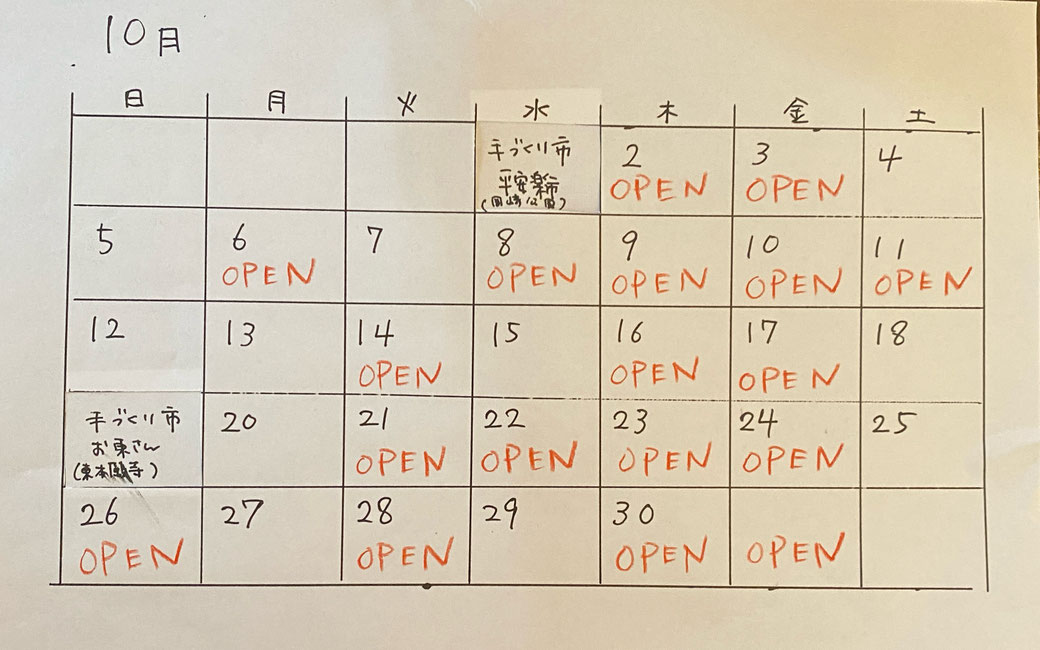 10月
日 月 火 水 木 金 土
手づくり市 2 3 4
平安楽市 OPEN OPEN
(岡崎公園)
5 6 7 8 9 10 11
OPEN OPEN OPEN OPEN OPEN
12 13 14 15 16 17 18
OPEN OPEN OPEN
手づくり市 20 21 22 23 24 25
お東さん OPEN OPEN OPEN OPEN
(東本願寺)
26 27 28 29 30
OPEN OPEN OPEN OPEN